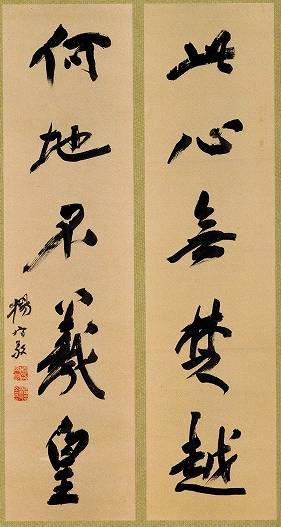 此心無楚越
何地不羲皇
楊守敬